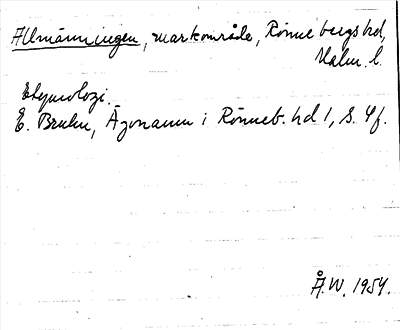 Allmänningen, markområde, Rönnebergs hd,
Malm. l.
Etymologi.
E. Bruhn, Ägonamn i Rönneb. hd 1, s. 4f.
Å.W. 1954.